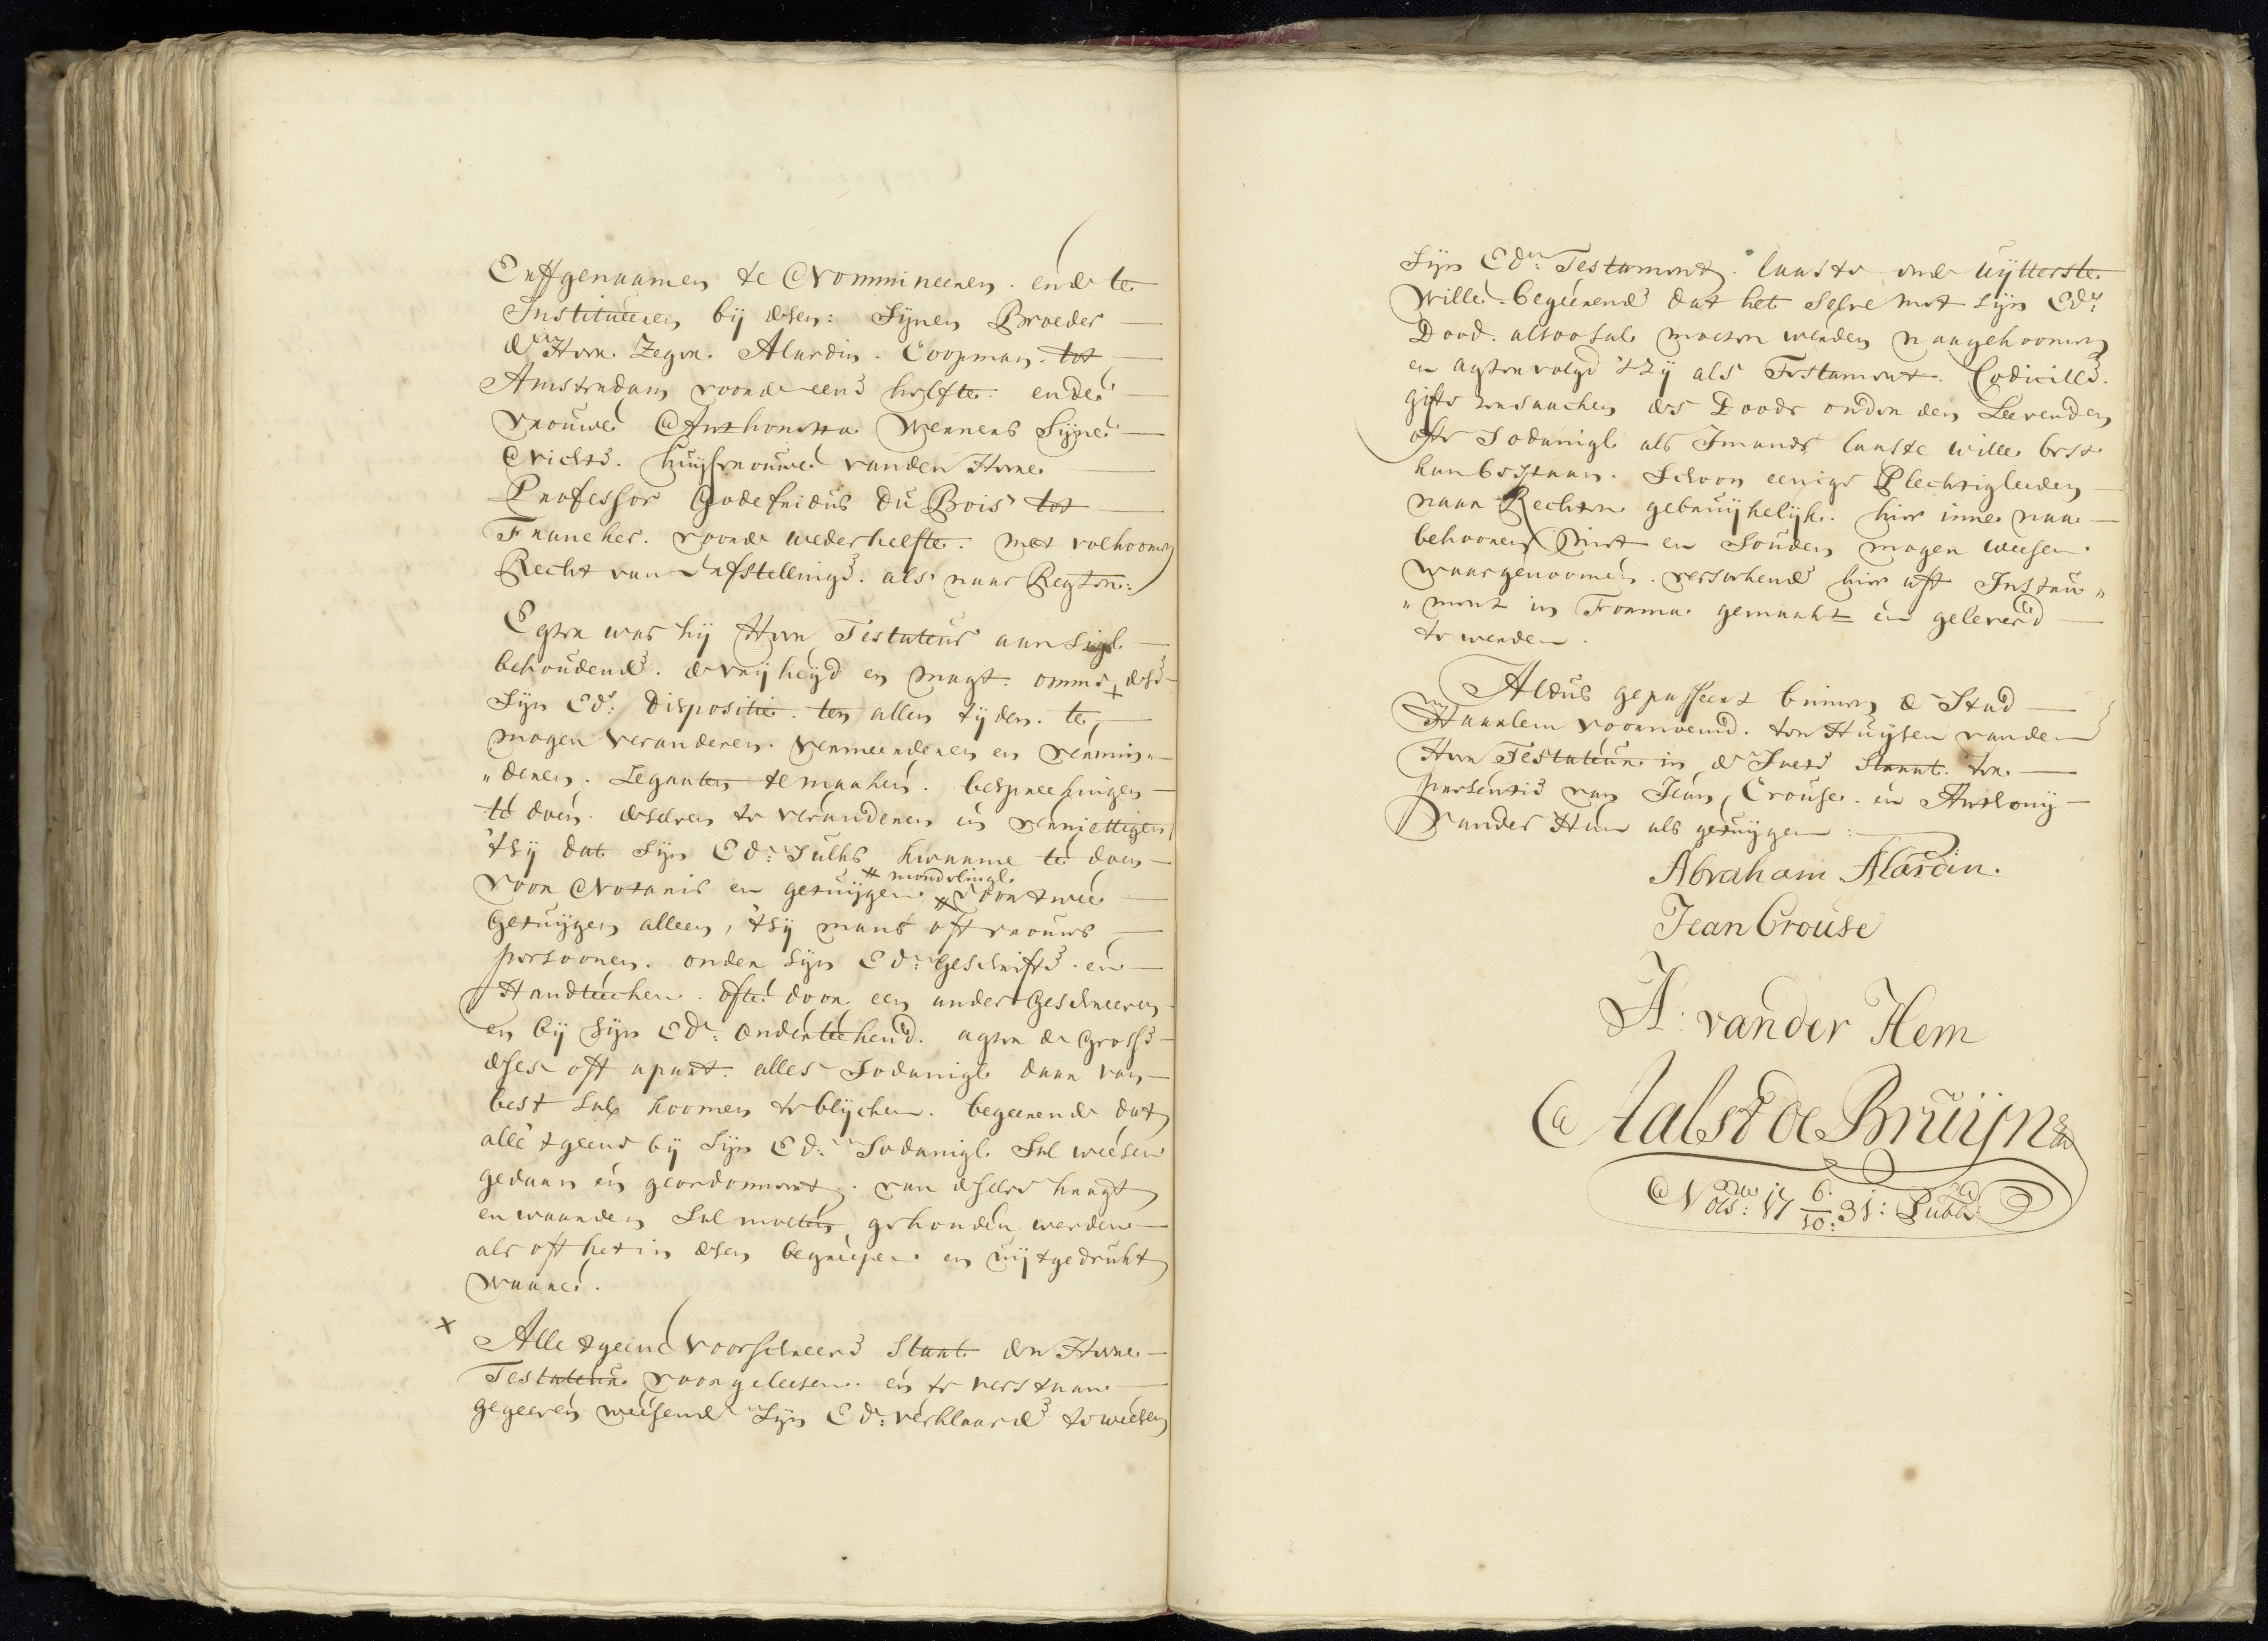 Erffgenaamen te Nommineeren. ende te
Institueeren bij desen: Sijnen Broeder
de Heer Zeger Alardin. Coopman. tot
Amsterdam voor de eene helfte. ende
vrouwe Anthonetta Wenners Sijne
Nichte. huijsvrouwe vanden Heere
Professor Godefridus Du Bois tot
Franeker. voor de wederhelfte. met volkoomen
Recht van afstellinge. als naar Regten:
Egter was hij Heer Testateur aan sig
behoudende. de vrijheijd en magt. omme + dese
Sijn Ed: Dispositie. ten allen tijden. te
mogen veranderen. vermeerderen en vermin„
„deren. Legaaten te maaken. bespreekingen
te doen. deselven te veranderen en vernietigen
'tsij dat Sijn Ed: Sulks kwaame te doen
voor Notaris en getuijgen # mondelingh voor twee
getuijgen alleen, 'tsij mans off vrouws
persoonen. onder sijn Ed: geschrifte en
Handteeken. ofte door een ander geschreeven
en bij Sijn Ed: onderteekend. agter de grosse
deses off apart. alles Sodanigh daar van
best sal koomen te blijcken. begeerende dat
alle 't geene bij Sijn Ed: Sodanigh Sal weesen
gedaan en geordonneert. van deselve kragt
en waarden Sal moeten gehouden werden
als oft het in desen begreepen en uijtgedrukt
waare.
x Alle 't geene voorschreeve Staat den Heere
Testateur voorgeleesen en te verstaan
gegeeven weesende Sijn Ed: verklaarde te weesen
Sijn Ed: Testament. laaste ende uijtterste
Wille. begeerende dat het selve met sijn Ed:
Dood. alsoo sal moeten werden naagekoomen
en agtervolgd 'tzij als Testament. Codicille.
gifte ter saacken des Doods onder den Leevenden
ofte Sodanigh als Imands laaste wille best
kan bestaan. Schoon eenige Plechtigheeden
naar Rechten gebruijkelijk. hier inne naa
behooren niet en Souden mogen weesen
waargenoomen. versoekende hier aff Instru„
„ment in Forma gemaakt en geleverd
te werden.
Aldus gepasseert binnen de Stad
Haarlem voornoemd. ten Huijsen vanden
Heer Testateur in de Straat. ter
presentie van Jean Crouse en Anthonij
vander Hem als getuijgen:
Abraham Alardin.
Jean Crouse
A: vander Hem
Aalst de Bruijn
Nots: 17 6/10: 31: Publ: